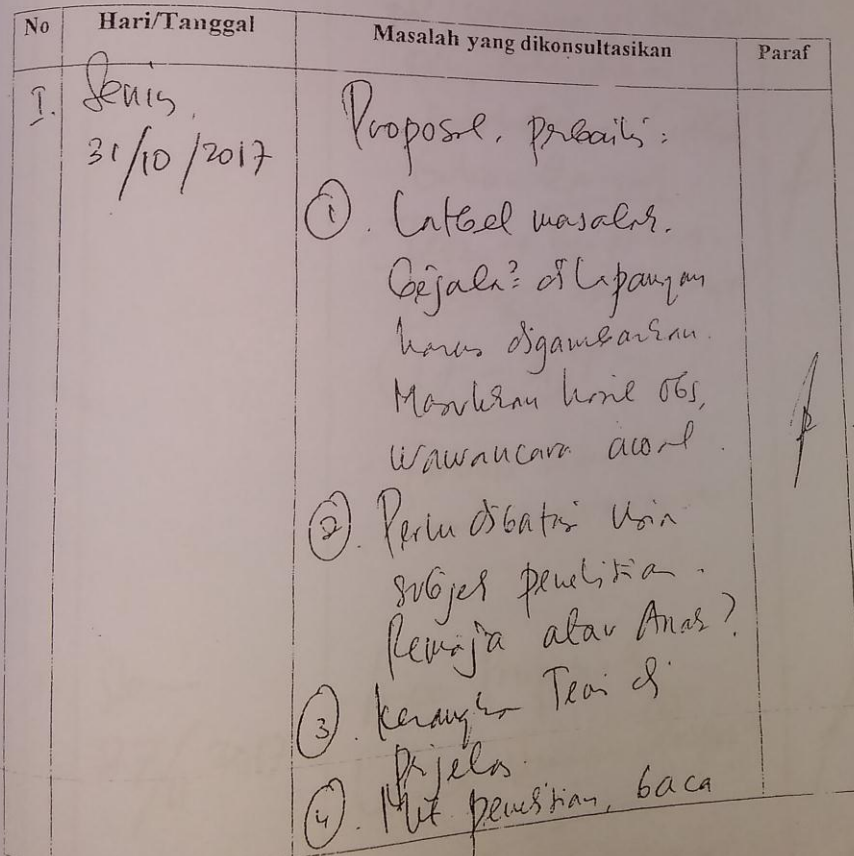 No Hari/Tanggal Masalah yang dikonsultasikan Paraf
I. Senin, Proposal, perbaiki :
31/10/2017
1. Latbel masalah.
Gejala2 di lapangan
harus digambarkan.
Masukkan hasil obs,
wawancara awal.
2. Perlu dibatasi usia
subjek penelitian.
Remaja atau Anak?
3. Kerangka Teori di
perjelas.
4. Met. penelitian, baca